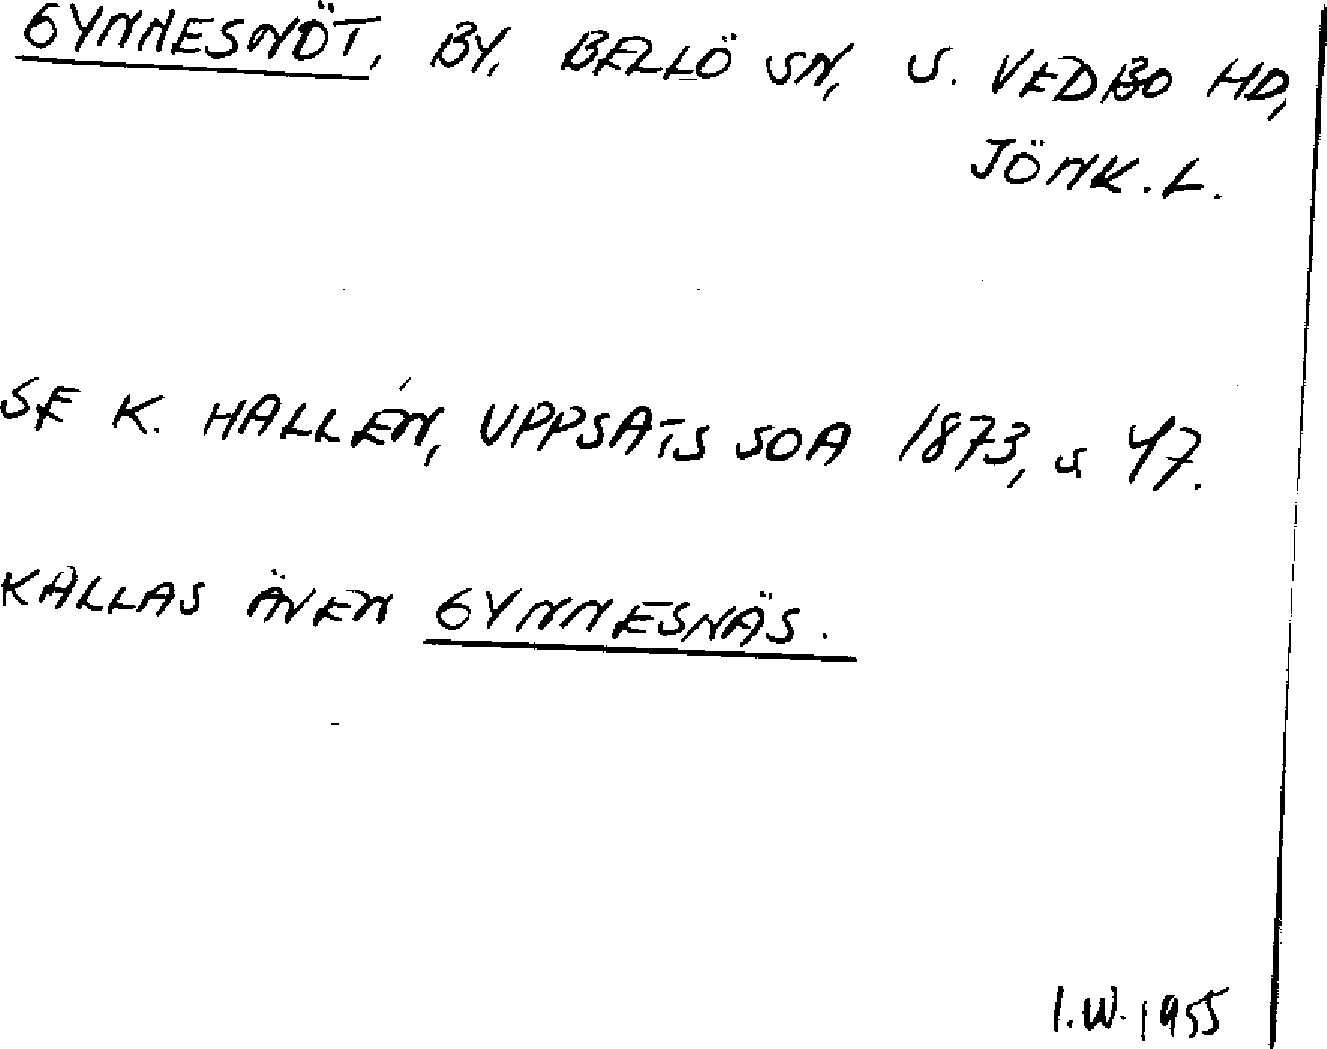 GYNNESNÖT, BY, BELLÖ SN, S. VEDBO HD,
JÖNK.L.
SE K. HALLÉN, UPPSATS SOA 1873, s 47.
KALLAS ÄVEN GYNNESNÄS.
I.W. 1955